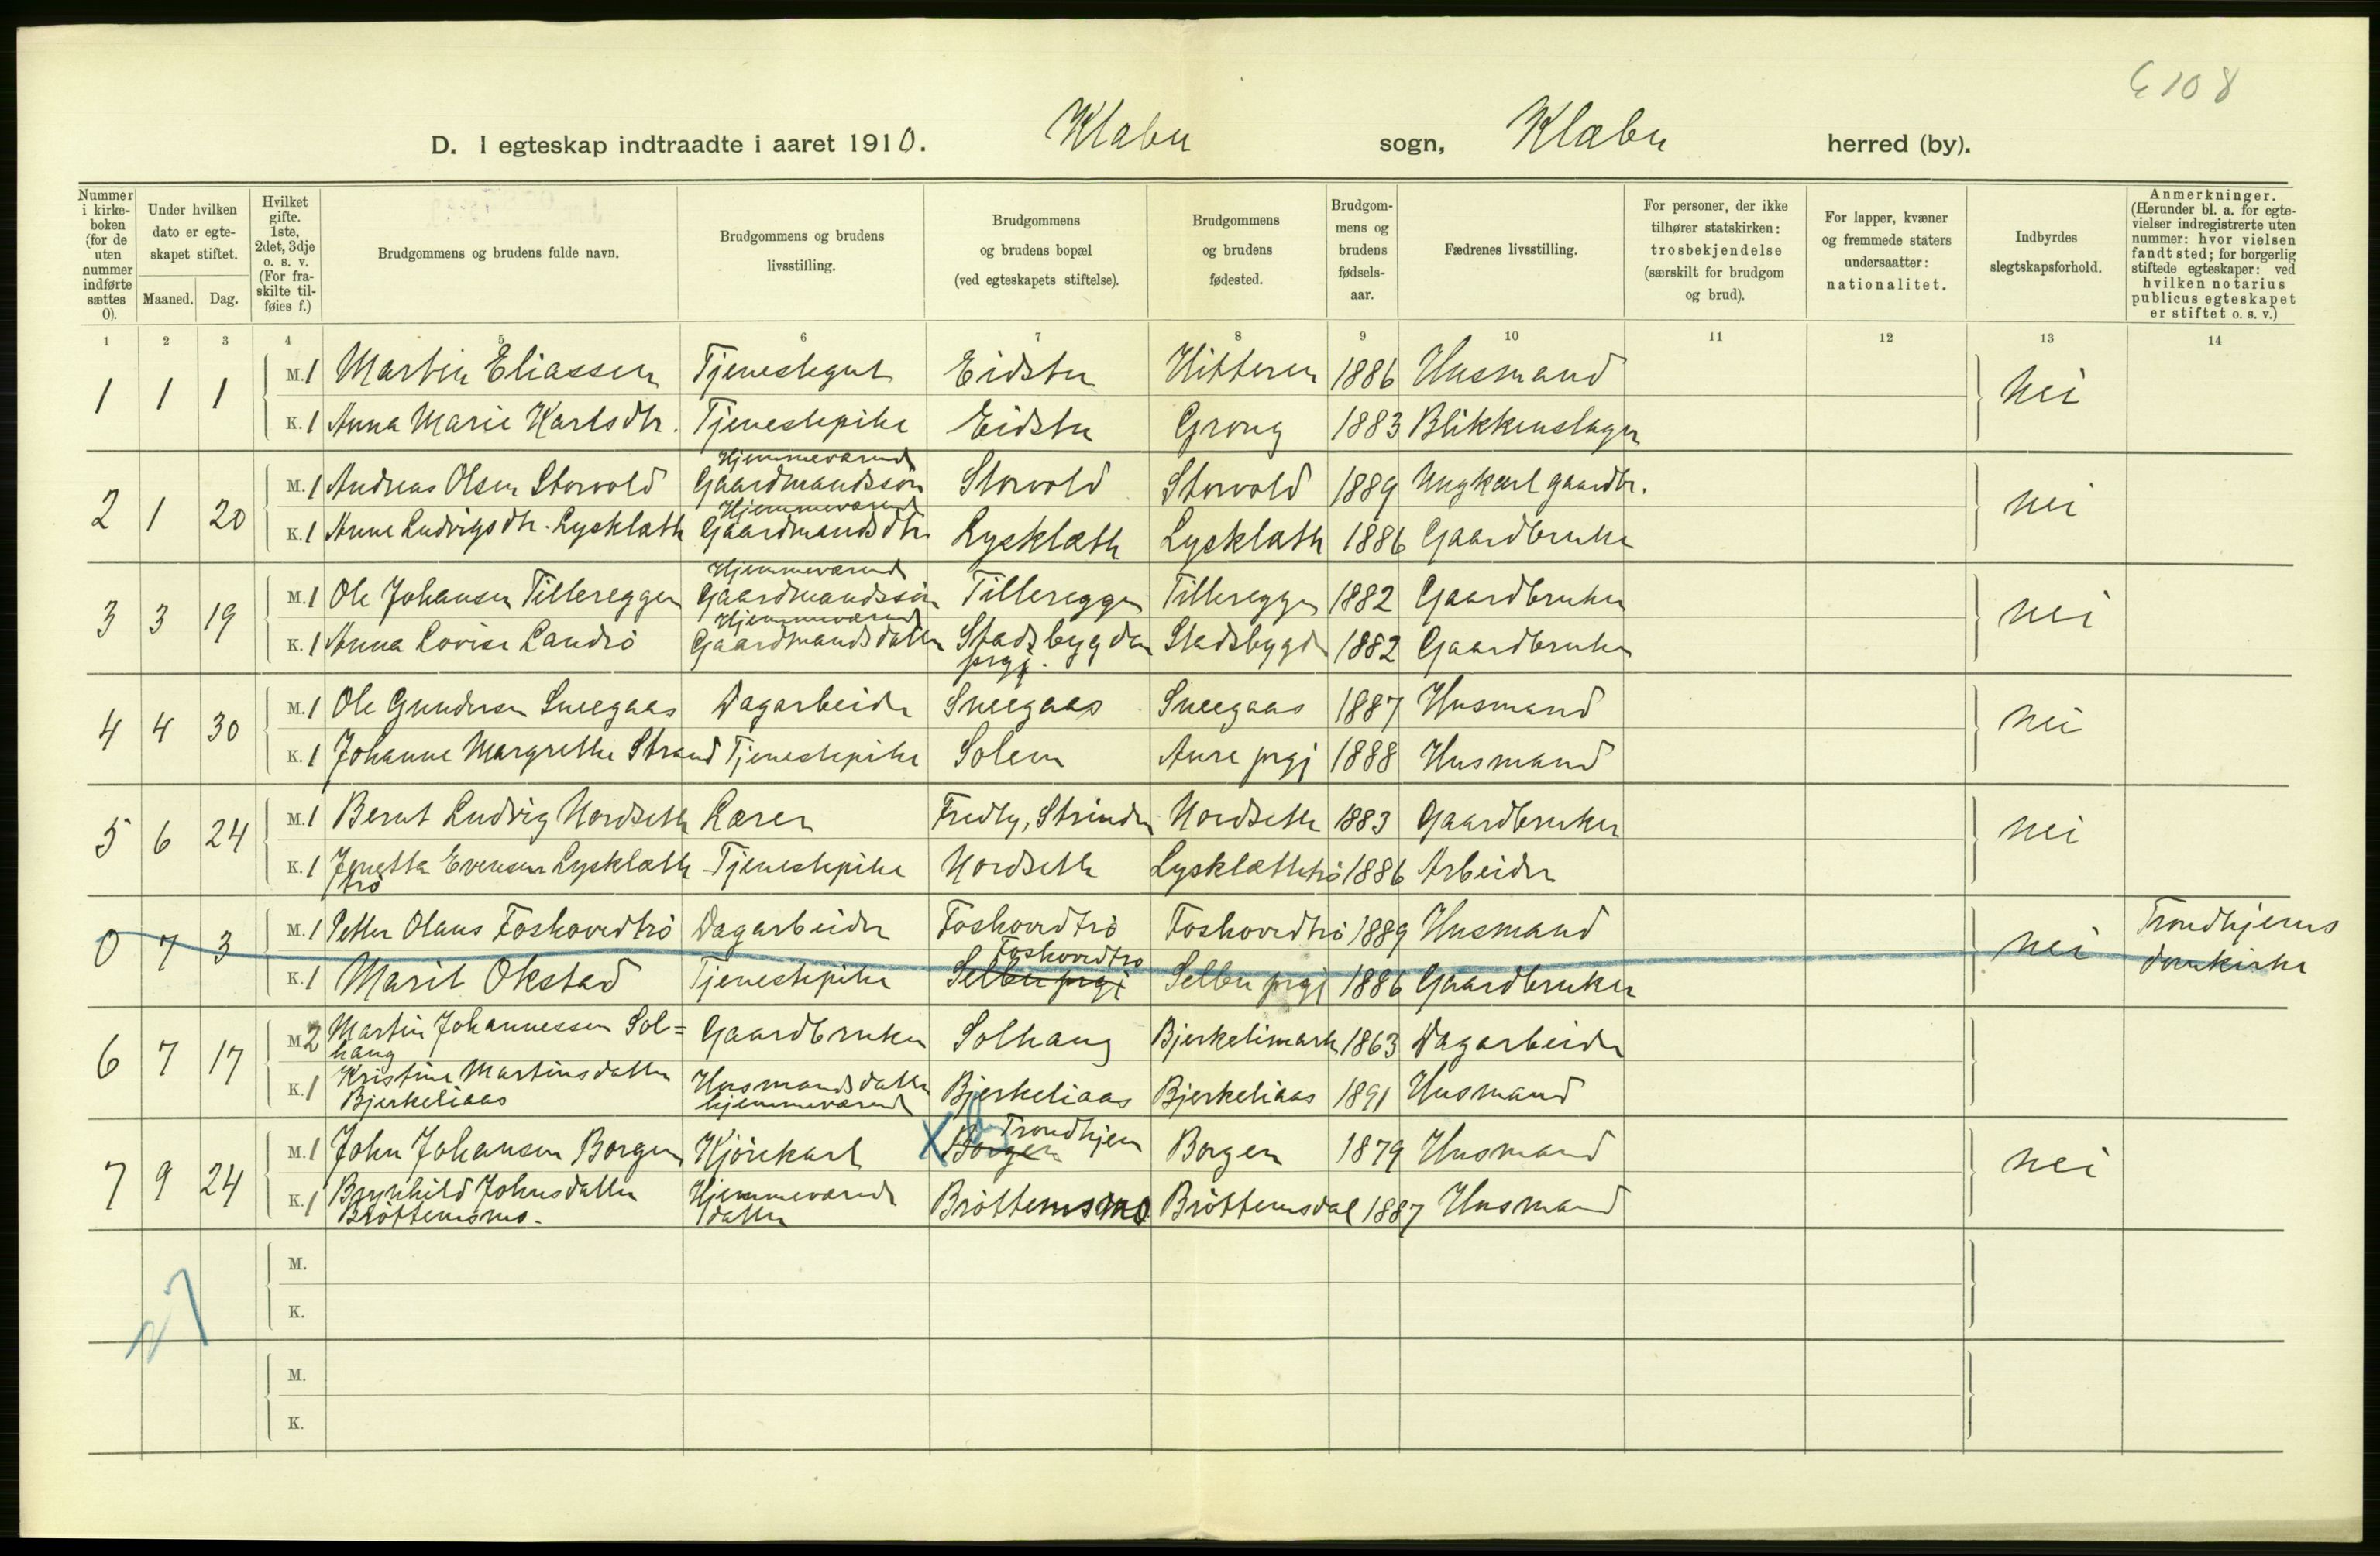 6108
D. I egteskap indtraadte i aaret 1910. Klæbu sogn, Klæbu herred (by).
Nummer i kirke-boken (for de uten nummer indførte sættes 0).
Under hvilken dato er egte-skapet stiftet.
Maaned. Dag.
Hvilket gifte. 1ste, 2det, 3dje o. s. v. (For fra-skilte til-føies f.)
Brudgommens og brudens fulde navn.
Brudgommens og brudens livsstilling.
Brudgommens og brudens bopæl (ved egteskapets stiftelse).
Brudgommens og brudens fødested.
Brudgom-mens og brudens fødsels-aar.
Fædrenes livsstilling.
For personer, der ikke tilhører statskirken: trosbekjendelse (særskilt for brudgom og brud).
For lapper, kvæner og fremmede staters undersaatter: nationalitet.
Indbyrdes slegtskapsforhold.
Anmerkninger. (Herunder bl. a. for egte-vielser indregistrerte uten nummer: hvor vielsen fandt sted; for borgerlig stiftede egteskaper: ved hvilken notarius publicus egteskapet er stiftet o. s. v.)
1 2 3 4 5 6 7 8 9 10 11 12 13 14
1 1 1 M. 1 Martin Eliassen Tjenestegut Eidstu Hitteren 1886 Husmand nei
K. 1 Anna Marie Karlsdtr. Tjenestepike Eidstu Grong 1883 Blikkenslager
2 1 20 M. 1 Andreas Olsen Storvold Hjemmeværend Gaardmandssøn Storvold Storvold 1889 Ungkarl gaardbr. nei
K. 1 Anne Ludvigsdtr. Lysklæth Hjemmeværend Gaardmandsdtr. Lysklæth Lysklæth 1886 Gaardbruker
3 3 19 M. 1 Ole Johansen Tillereggen Hjemmeværend Gaardmandssøn Tillereggen Tillereggen 1882 Gaardbruker nei
K. 1 Anna Lovise Landrö Hjemmeværend Gaardmandsdatter Stadsbygden prgj. Stadsbygd 1882 Gaardbruker
4 4 30 M. 1 Ole Gundersen Sneegaas Dagarbeider Sneegaas Sneegaas 1887 Husmand nei
K. 1 Johanne Margrethe Strand Tjenestepike Solem Aure prgj 1888 Husmand
5 6 24 M. 1 Bernt Ludvig Nordseth Lærer Fredly, Strinden Nordseth 1883 Gaardbruker nei
K. 1 Jenetta Evensen Lysklæth trö Tjenestepike Nordseth Lysklæthtrö 1886 Arbeider
0 7 3 M. 1 Petter Olaus Foshovedtrö Dagarbeider Foshovedtrö Foshovedtrö 1889 Husmand nei Trondhjems domkirke
K. 1 Marit Okstad Tjenestepike Foshovedtrö Selbu prgj Selbu prgj 1886 Gaardbruker
6 7 17 M. 2 Martin Johannessen Sol=haug Gaardbruker Solhaug Bjerkelimark 1863 Dagarbeider
K. 1 Kristine Martinsdatter Bjerkeliaas Husmandsdatter hjemmeværend Bjerkeliaas Bjerkeliaas 1891 Husmand
7 9 24 M. 1 John Johansen Borgen Kjörekarl X Trondhjem Borgen Borgen 1879 Husmand nei
K. 1 Brynhild Johnsdatter Bröttemsmo. Hjemmeværende datter Bröttemsmo Bröttemsdal 1887 Husmand
M.
K.
M.
K.